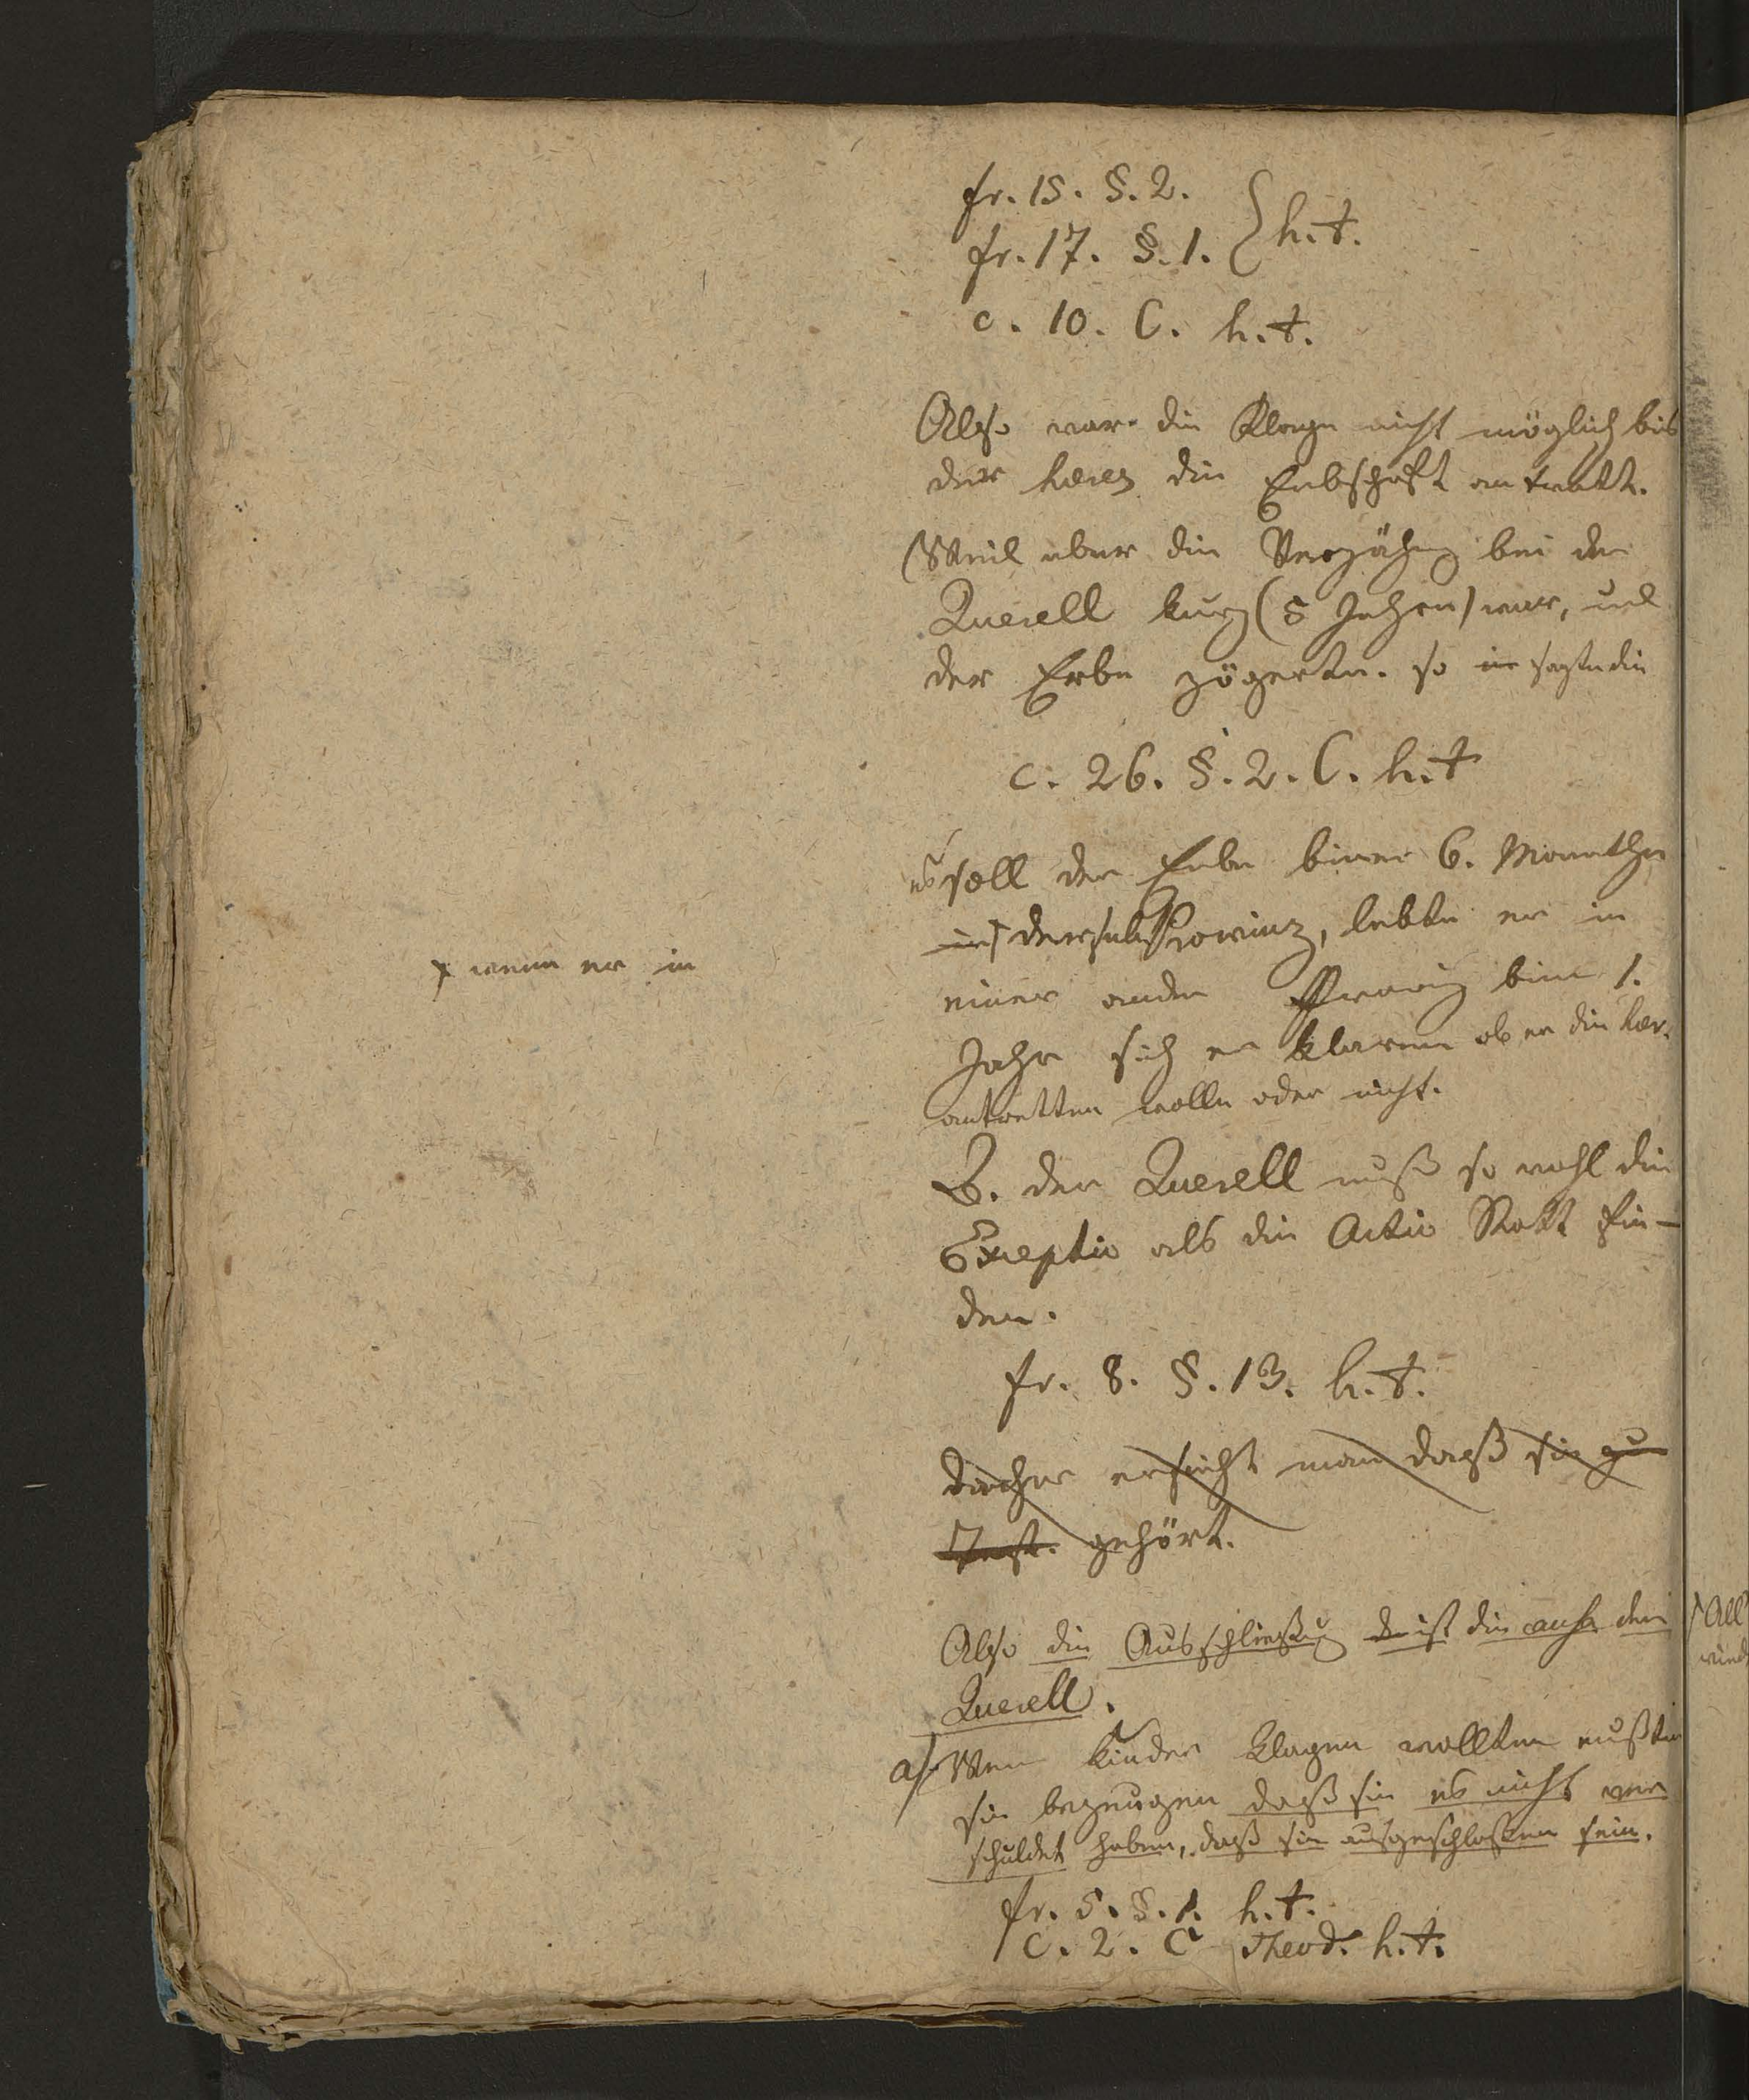 fr. 15. §. 2.
fr. 17. §. 1. } h. t.
c. 10. C. h. t.
Also war die Klage nicht möglich bis
der heres die Erbschaft antratt.
Weil aber die Verjähg bei der
Querell kurz (5 Jahren) war, und
der Erbe zögerte. so sagte die
c. 26. §. 2. C. h. t
es soll der Erbe binnen 6. Monathen
⨯ wenn er in
derselb Provinz, lebte er in
einer andern Provinz binn 1.
Jahr sich er klaren ob er die her.
antretten wolle oder nicht.
B. der Querell muß so wohl die
Exceptio als die Actio Statt fin-
den.
fr. 8. §. 13. h. t.
daher ersieht man daß sie zu
Test. gehört.
Also die Ausschließug ist die causa der
Querell.
a) Wenn Kinder klagen wollten mußten
sie bezeugen daß sie es nicht ver
schuldet haben, daß sie ausgeschloßen sein.
fr. 5. §. 1. h. t.
c. 2. C Theod. h. t.